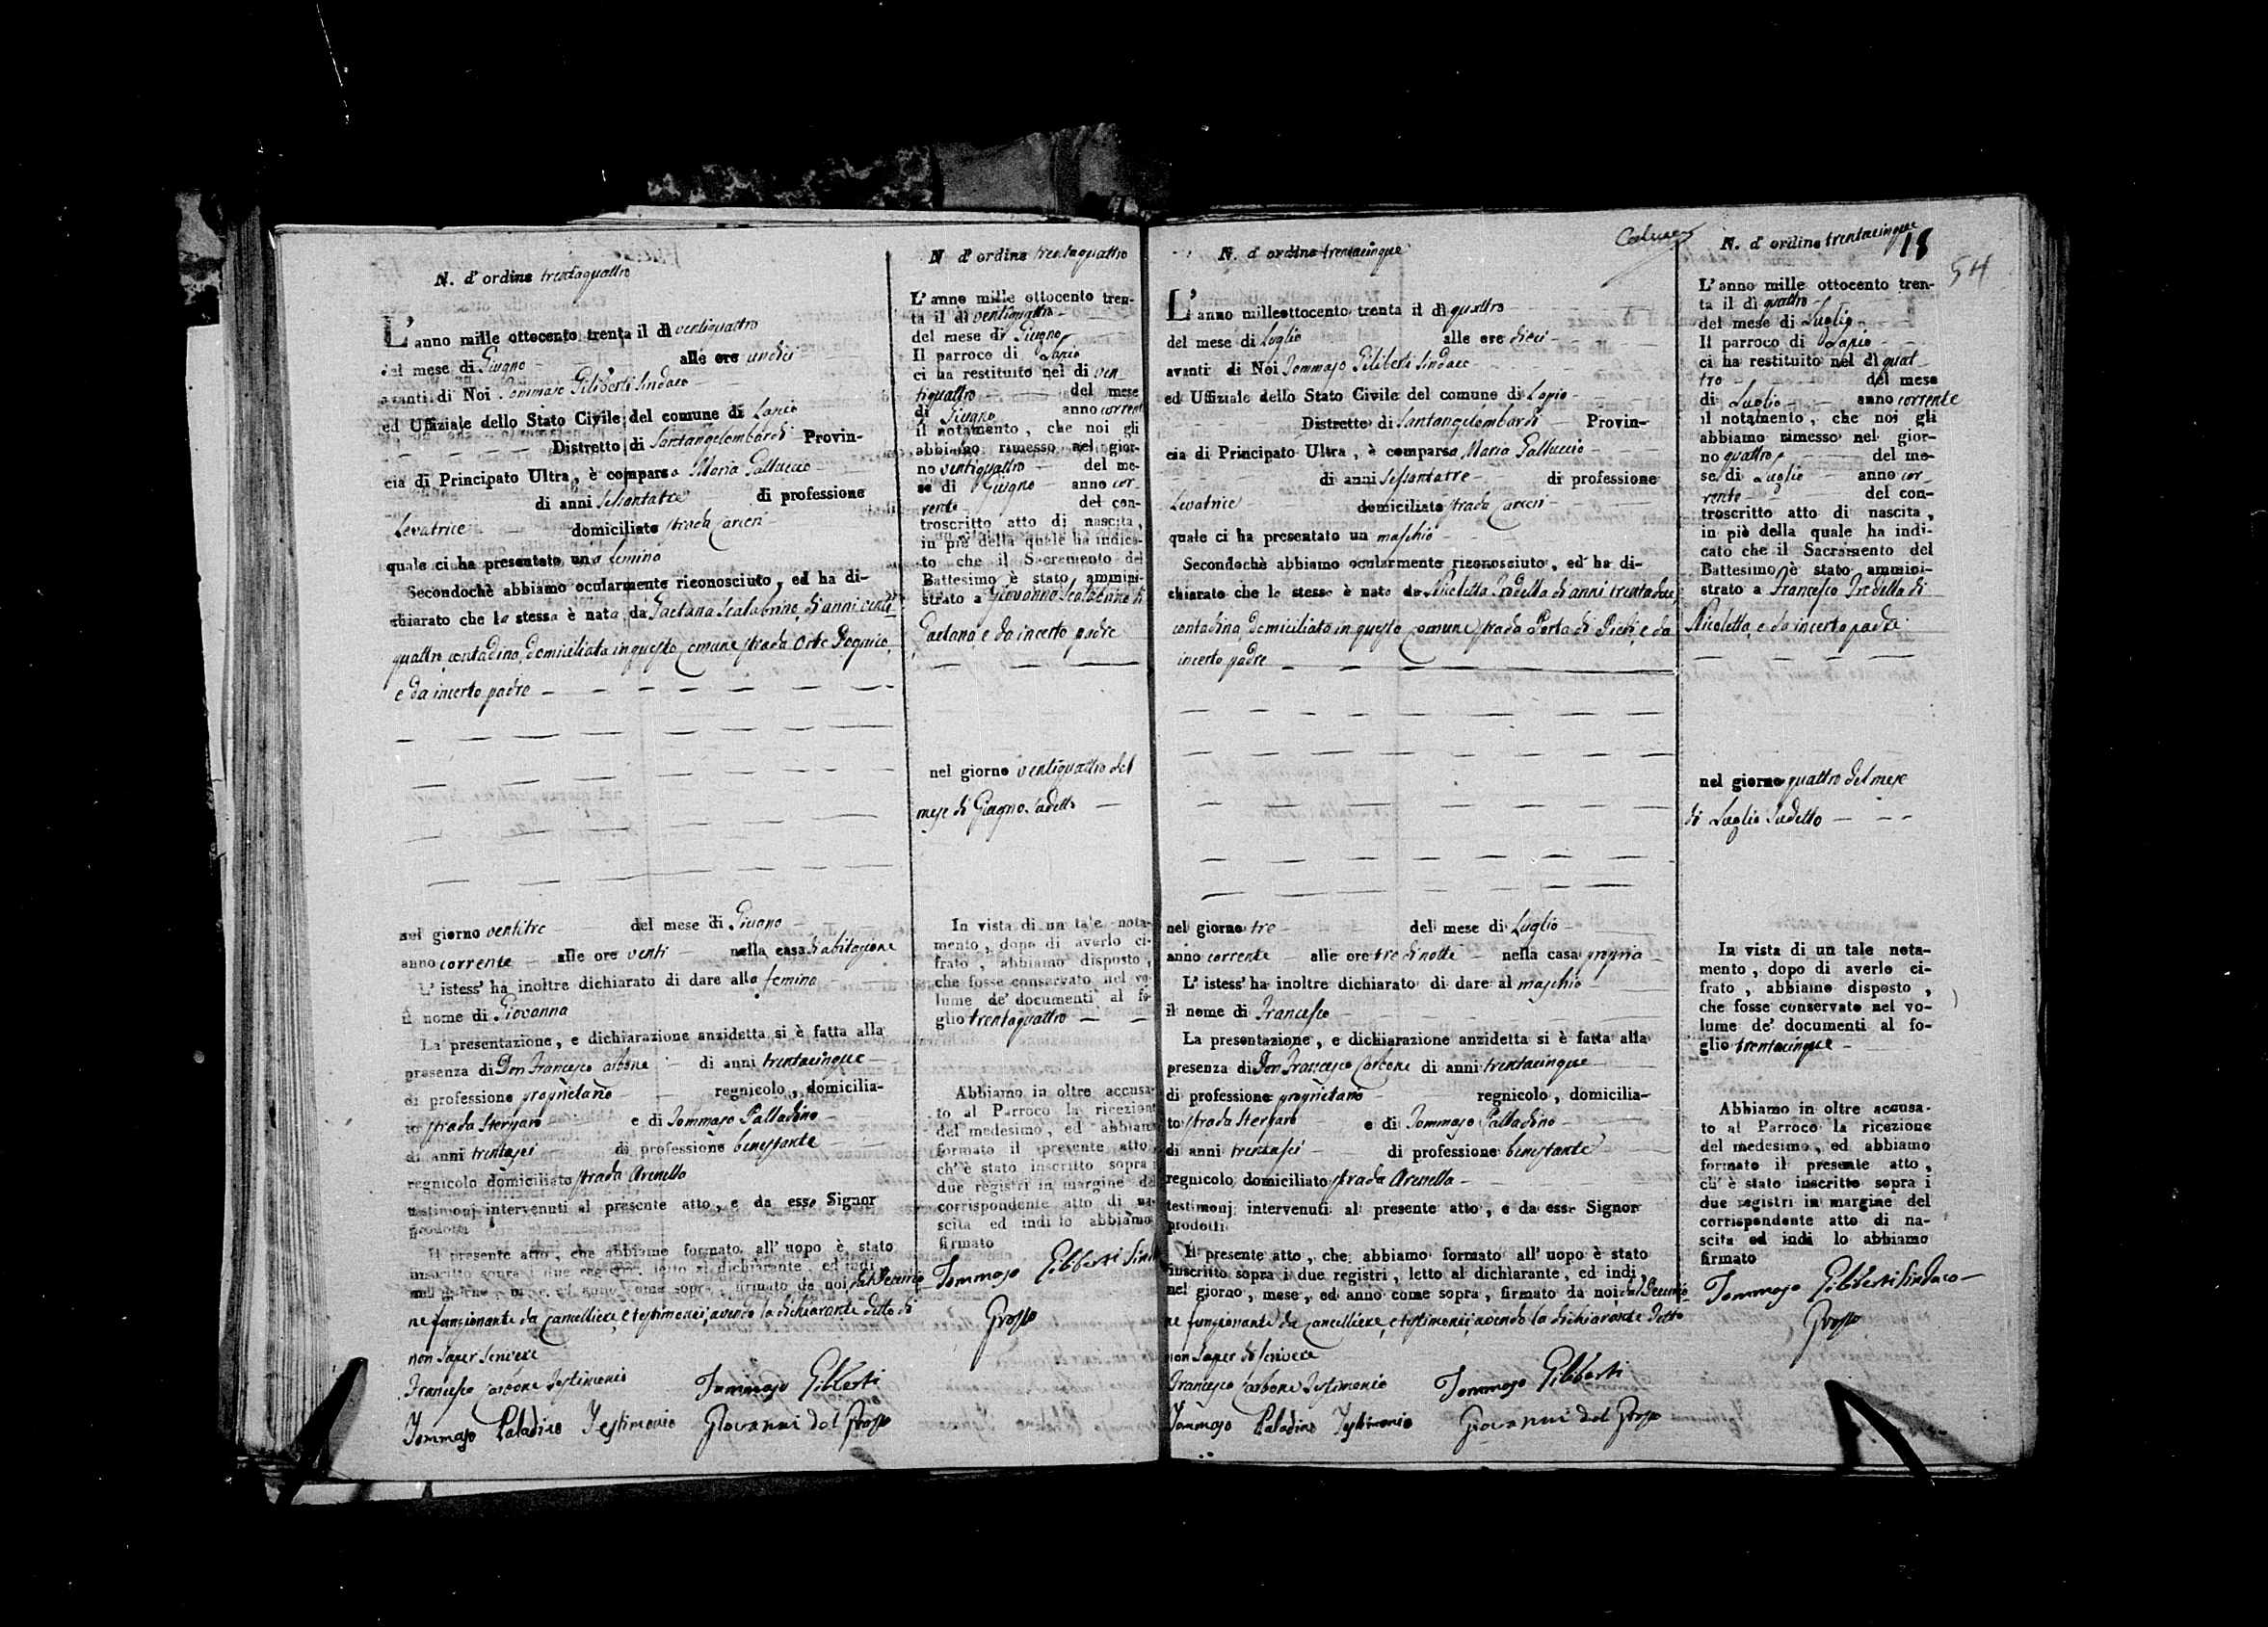 N. d' ordine trentaquattro
L' anno mille ottocento trenta il dì ventiquattro
del mese di Giugno alle ore undici
avanti di Noi Tommaso Giliberti Sindaco
ed Uffiziale dello Stato Civile del comune di Lapio
Distretto di Santangelombardi Provin-
cia di Principato Ultra, è comparsa Maria Galluccio
di anni sessantatre di professione
Levatrice domiciliata strada Carceri
quale ci ha presentato una femina
Secondochè abbiamo ocularmente riconosciuto, ed ha di-
chiarato che la stessa è nata da Gaetana Scalabrino, di anni venti
quattro, contadina, domiciliata in questo Comune strada Orto
e da incerto padre
nel giorno ventitre del mese di Giugno
anno corrente alle ore venti nella casa di abitazione
L' istess' ha inoltre dichiarato di dare alla femina
il nome di Giovanna
La presentazione, e dichiarazione anzidetta si è fatta alla
presenza di Don Francesco Carbone di anni trentacinque
di professione proprietario regnicolo, domicilia-
to strada Sterparo e di Tommaso Palladino
di anni trentasei di professione benestante
regnicolo domiciliato strada Arenella
testimonj intervenuti al presente atto, e da esso Signor
prodotti
Il presente atto, che abbiamo formato all' uopo è stato
inscritto sopra i due registri, letto al dichiarante, ed indi
nel giorno, mese, ed anno come sopra, firmato da noi, dal Decurio
ne funzionante da Cancelliere, e testimonii, avendo la dichiarante detto di
non saper scrivere
Francesco Carbone Testimonio Tommaso Giliberti
Tommaso Paladino Testimonio Giovanni del Grosso
N d' ordine trentaquattro
L' anno mille ottocento tren-
ta il dì ventiquattro
del mese di Giugno
Il parroco di Lapio
ci ha restituito nel dì ven
tiquattro del mese
di Giugno anno corrente
il notamento, che noi gli
abbiamo rimesso nel gior-
no ventiquattro del me-
se di Giugno anno cor-
rente del con-
troscritto atto di nascita,
in piè della quale ha indica-
to che il Sacramento del
Battesimo è stato ammini-
strato a Giovanna Scalabrino di
Gaetana, e da incerto padre
nel giorno ventiquattro del
mese di Giugno sudetto
In vista di un tale nota-
mento, dopo di averlo ci-
frato, abbiamo disposto,
che fosse conservato nel vo-
lume de' documenti al fo-
glio trentaquattro
Abbiamo in oltre accusa-
to al Parroco la ricezione
del medesimo, ed abbiamo
formato il presente atto,
ch' è stato inscritto sopra i
due registri in margine del
corrispondente atto di na-
scita ed indi lo abbiamo
firmato
Tommaso Giliberti Sind
Grosso
N. d' ordine trentacinque
L' anno milleottocento trenta il dì quattro
del mese di Luglio alle ore dieci
avanti di Noi Tommaso Giliberti Sindaco
ed Uffiziale dello Stato Civile del comune di Lapio
Distretto di Santangelombardi Provin-
cia di Principato Ultra, è comparsa Maria Galluccio
di anni sessantatre di professione
Levatrice domiciliata strada Carceri
quale ci ha presentato un maschio
Secondochè abbiamo ocularmente riconosciuto, ed ha di-
chiarato che lo stesso è nato da Nicoletta Tredella di anni trentadue,
contadina, domiciliata in questo Comune strada Porta di Piedi, e da
incerto padre
nel giorno tre del mese di Luglio
anno corrente alle ore tre di notte nella casa propria
L' istess' ha inoltre dichiarato di dare al maschio
il nome di Francesco
La presentazione, e dichiarazione anzidetta si è fatta alla
presenza di Don Francesco Carbone di anni trentacinque
di professione proprietario regnicolo, domicilia-
to strada Sterparo e di Tommaso Palladino
di anni trentasei di professione benestante
regnicolo domiciliato strada Arenella
testimonj intervenuti al presente atto, e da esso Signor
prodotti
Il presente atto, che abbiamo formato all' uopo è stato
inscritto sopra i due registri, letto al dichiarante, ed indi
nel giorno, mese, ed anno come sopra, firmato da noi, dal Decurio
ne funzionante da Cancelliere, e testimonii, avendo la dichiarante detto
non saper di scrivere
Francesco Carbone Testimonio Tommaso Giliberti
Tommaso Paladino Testimonio Giovanni del Grosso
N. d' ordine trentacinque 18
54
L' anno mille ottocento tren-
ta il dì quattro
del mese di Luglio
Il parroco di Lapio
ci ha restituito nel dì quat
tro del mese
di Luglio anno corrente
il notamento, che noi gli
abbiamo rimesso nel gior-
no quattro del me-
se di Luglio anno cor
rente del con-
troscritto atto di nascita,
in piè della quale ha indi-
cato che il Sacramento del
Battesimo è stato ammini-
strato a Francesco Tredella di
Nicoletta, e da incerto padre
nel giorno quattro del mese
di Luglio sudetto
In vista di un tale nota-
mento, dopo di averlo ci-
frato, abbiamo disposto,
che fosse conservato nel vo-
lume de' documenti al fo-
glio trentacinque
Abbiamo in oltre accusa-
to al Parroco la ricezione
del medesimo, ed abbiamo
formato il presente atto,
ch' è stato inscritto sopra i
due registri in margine del
corrispondente atto di na-
scita ed indi lo abbiamo
firmato
Tommaso Giliberti Sindaco
Grosso